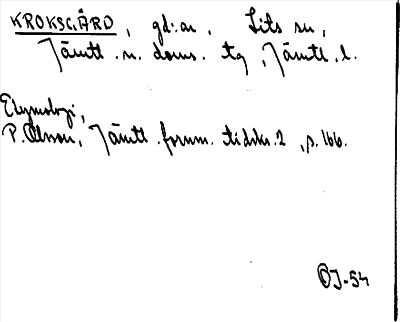 KROKSGÅRD, gd:ar, Lits sn,
Jämtl. n. doms. tg, Jämtl. l.
Etymologi,
P. Olsson, Jämtl. fornm. tidskr. 2, s. 166.
OJ-54